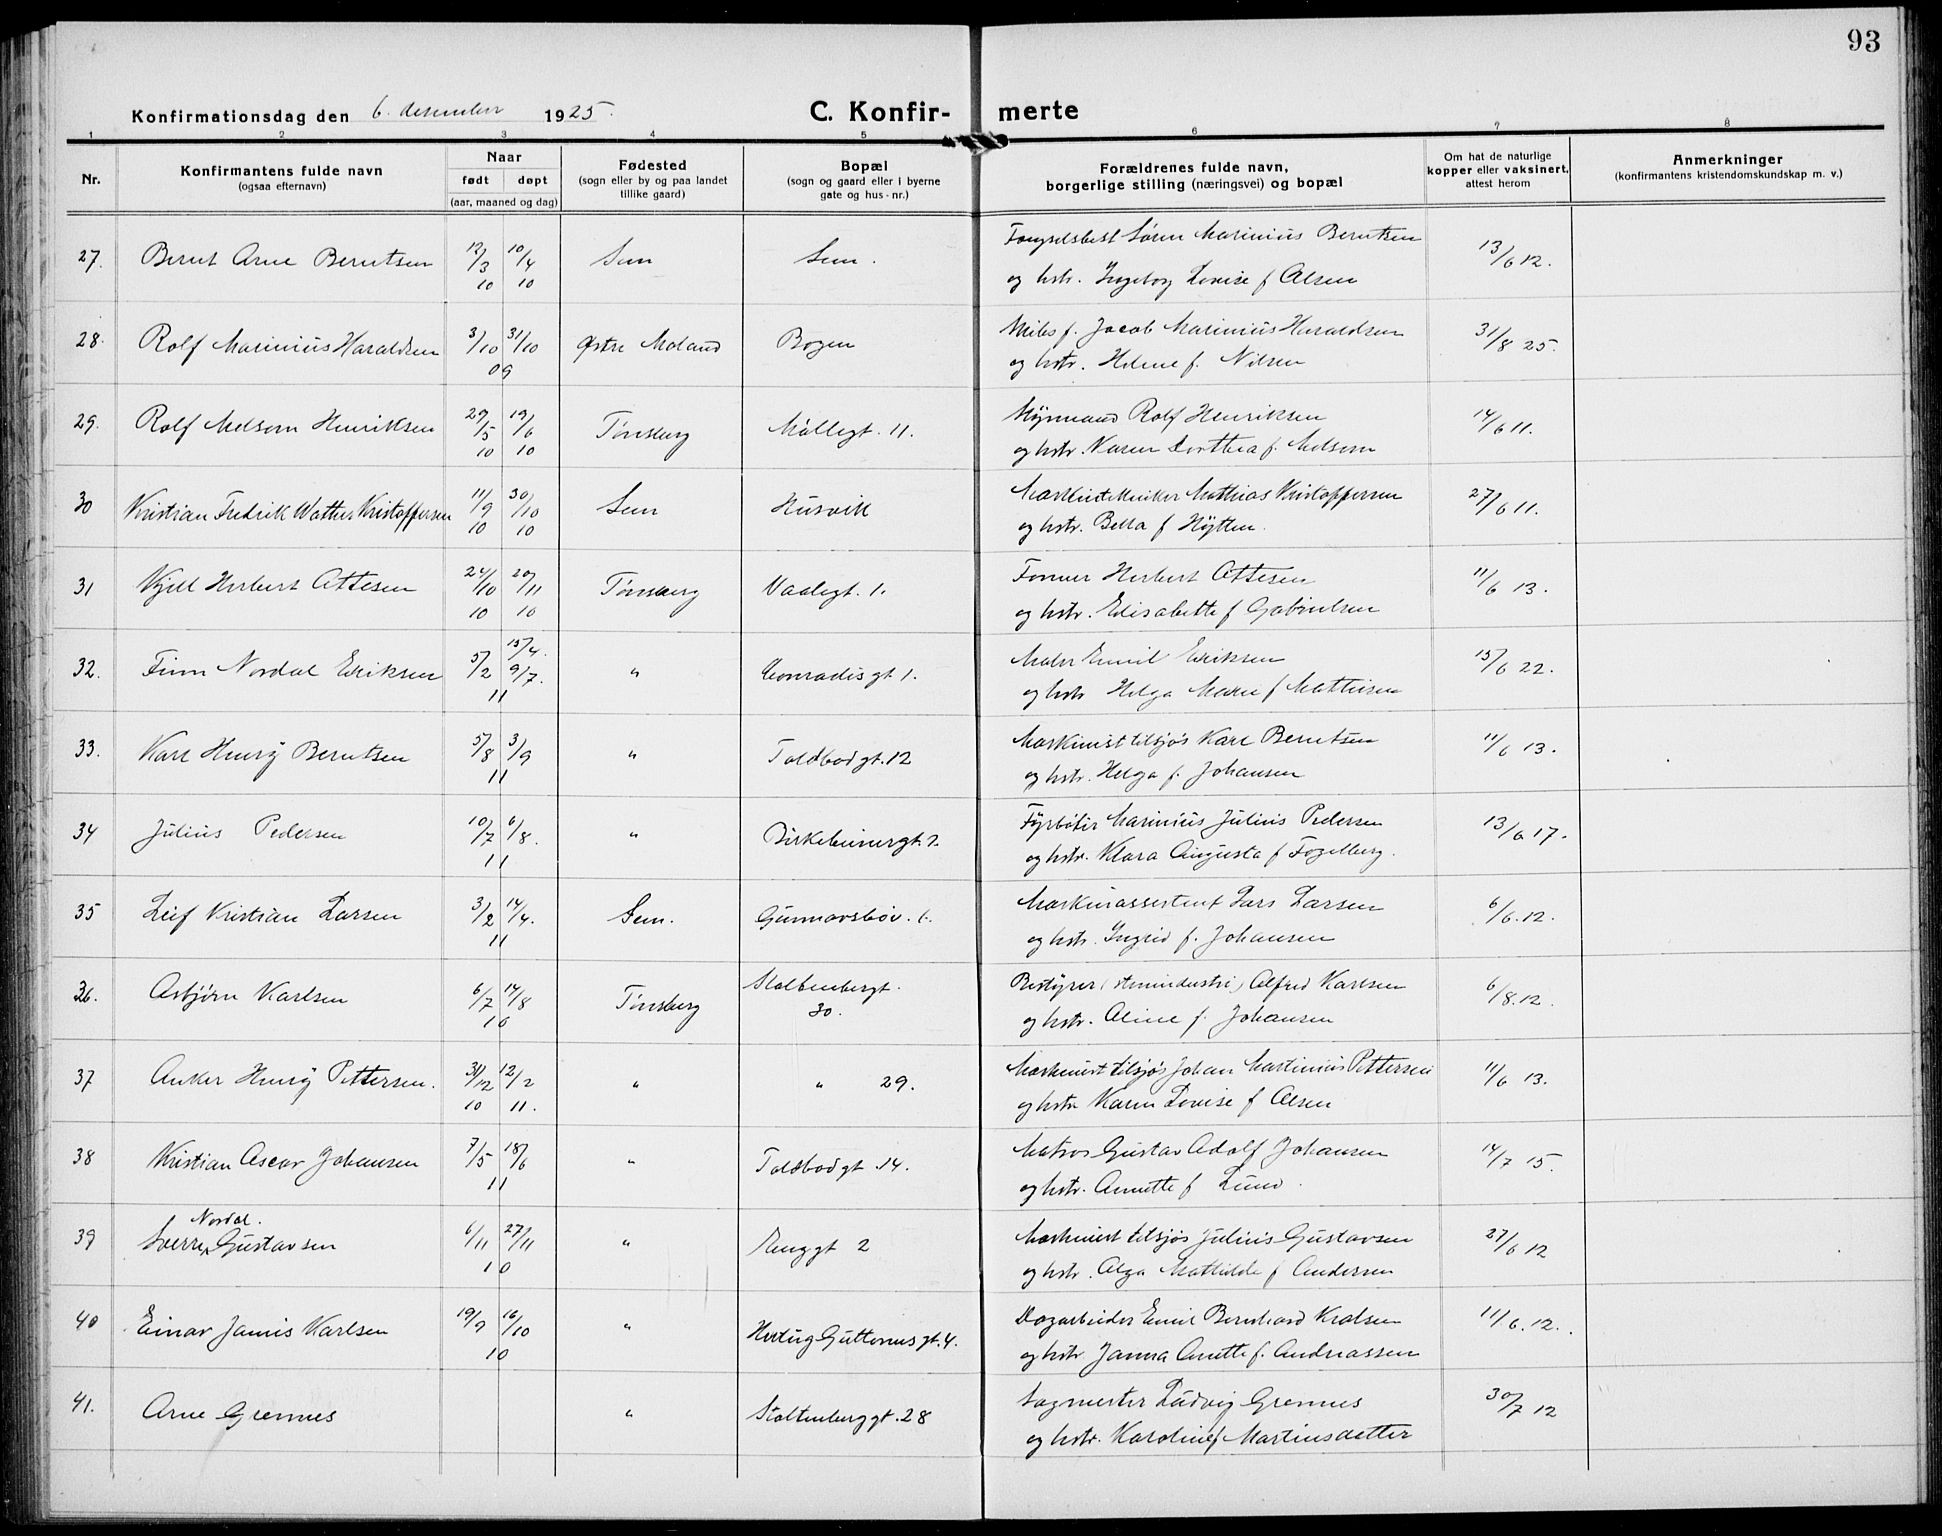 93
Konfirmationsdag den 6. desember 1925. C. Konfirmerte
1 2 3 4 5 6 7 8
Nr.
Konfirmantens fulde navn
(ogsaa efternavn)
Naar
født døpt
(aar, maaned og dag)
Fødested
(sogn eller by og paa landet
tillike gaard)
Bopæl
(sogn og gaard eller i byerne
gate og hus-nr.)
Forældrenes fulde navn,
borgerlige stilling (næringsvei) og bopæl
Om hat de naturlige
kopper eller vaksinert,
attest herom
Anmerkninger
(konfirmantens kristendomskundskap m. v.)
27. Bernt Arne Berntsen 12/3 10 10/4 10 Sem Sem. Fængselsbest Søren Marinius Berntsen 13/6 12.
og hstr. Ingeborg Lovise f Olsen
28. Rolf Marinius Haraldsen 3/10 31/10 09 Østre Moland Bogen Jacob Marinius Haraldsen 31/8 25.
og hstr. Helene f. Nilsen
29. Rolf Melsom Henriksen 29/5 10 19/6 10 Tønsberg Møllegt. 11. Rolf Henriksen 14/6 11.
og hstr. Karen Dorthea f. Melsom
30 Kristian Fredrik Wather Kristoffersen 11/9 10 30/10 10 Sem Husvik Mathias Kristoffersen 27/6 11.
og hstr. Betta f Hytten.
31 Kjell Herbert Ottesen 24/10 10 20/11 10 Tønsberg Vaalegt. 1. Former Herbert Ottesen 11/6 13.
og hstr. Elisabeth f Gabrielsen
32. Finn Nordal Eriksen 5/2 15/4. 9/7. 11 " Conradisgt 1. Maler Emil Eriksen 15/6 22.
og hstr Helga Marie f Mathisen
33. Karl Henry Berntsen 5/8 3/9 11 " Toldbodgt. 12 Maskinist tilsjøs Karl Berntsen 11/6 13.
og hstr. Helga f. Johansen
34 Julius Pedersen 10/7 6/8. 11 " Birkebeinergt. 2. Fyrbøter Marinius Julius Pedersen 13/6 17.
og hstr. Klara Augusta f Fogelberg.
35 Leif Kristian Larsen 3/2 14/4. 11 Sem. Gunnarsbøv. 1. Maskinassistent Lars Larsen 6/6. 12.
og hstr. Ingrid f. Johansen
36. Asbjørn Karlsen 6/7 14/8 10 Tønsberg Stoltenbergt. 30. Bestyrer (stenindustri) Alfred Karlsen 6/8. 12.
og hstr. Aline f. Johansen
37 Anker Henry Pettersen. 31/12 10 12/2 11. " " 29. Maskinist tilsjøs Johan Martinius Pettersen 11/6 13.
og hstr Karen Lovise f Olsen
38 Kristian Oscar Johansen 7/5 18/6 11 " Toldbodgt. 14. Matros Gustav Adolf Johansen 14/7 15.
og hstr. Annette f Lund.
39 Sverre Nordal. Gustavsen 6/11 27/11 10 " Enggt 2 Maskinist tilsjøs Julius Gustavsen 27/6 12
og hstr. Olga Mathilde f Andersen
40 Einar Janus Karlsen 19/9 16/10 10 " Hertug Guttormsgt. 4. Dagarbeider Emil Bernhard Karlsen 11/6. 12.
og hstr Janna Anette f. Andreassen
41. Arne Grennes " Stoltenberggt. 28 Sagmester Ludvig Grennes 30/7 12
og hstr. Karoline f Martinsdatter